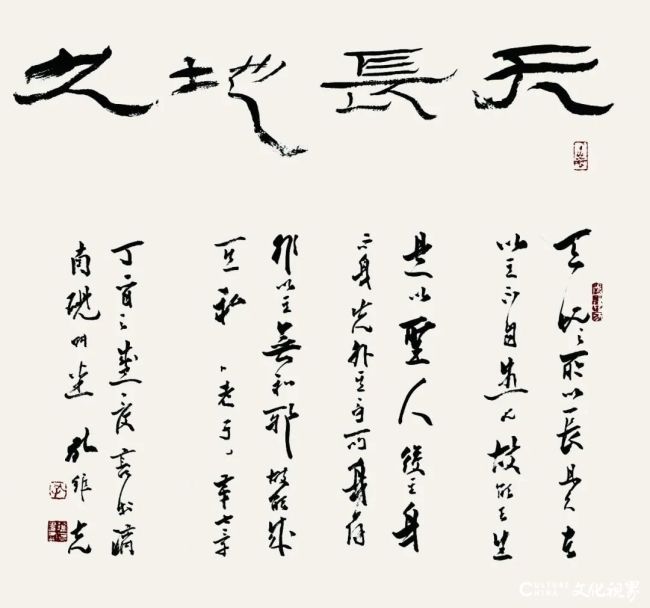 天長地久
天地之所以長且久者
以其不自生 故能長生
是以聖人後其身
而身先外其身而身存
非以其無私邪故能成
其私 老子第七章
丁酉之 夏書於濟
南硯 孔維克
CULTURE CHINA 文化视界